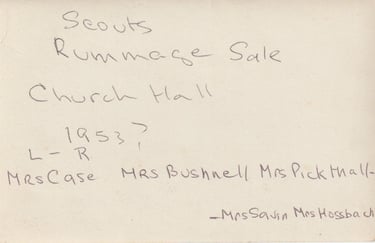 Scouts
Rummage Sale
Church Hall
1953?
L - R
Mrs Case Mrs Bushnell Mrs Pickthall -
- Mrs Savin Mrs Hossbach